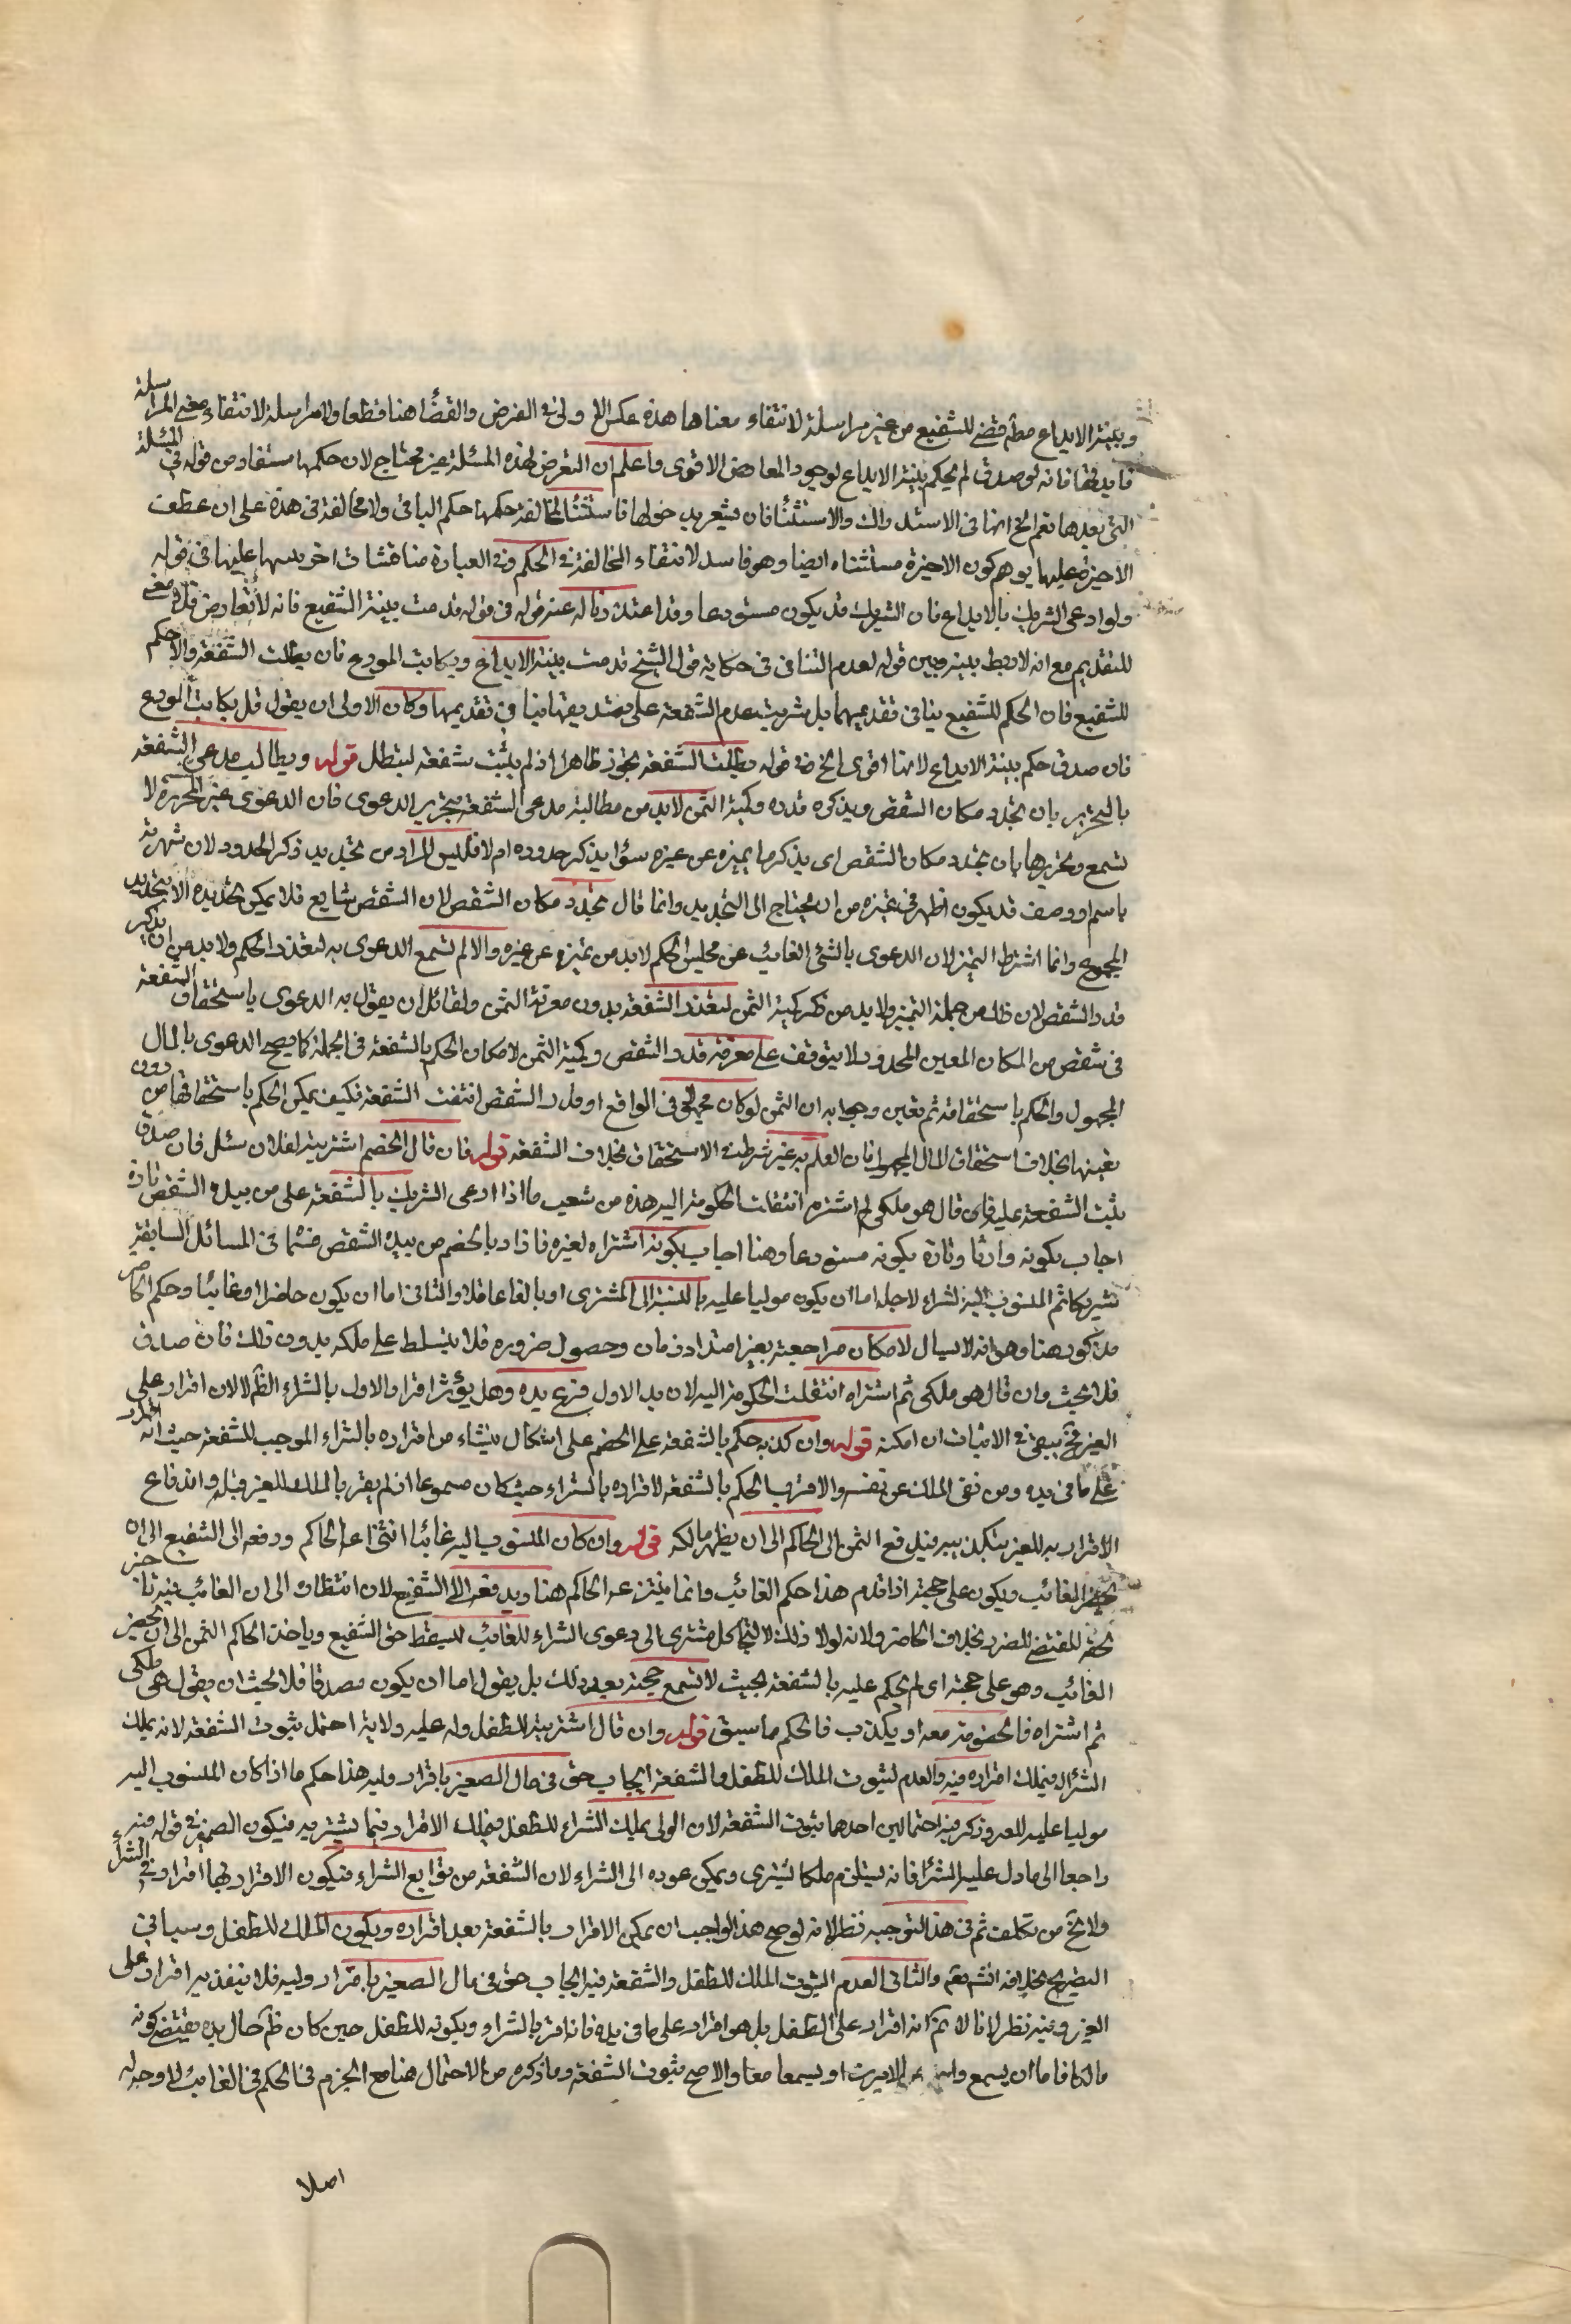 وبينة الايداع مطم قضى للشفيع من غير مراسلة لانتفاء معناها هذه عكس الاولى في الفرض والقضاء هنا قطعا ولا مراسلة لانتفاء معنى المراسلة
فايدتها فانه لو صدق لم يحكم ببينة الايداع لوجود المعارض الاقوى واعلم ان التعرض لهذه المسئلة غير محتاج لان حكمها مستفاد من قوله في المسئلة
التي بعدها نعم الخ انها في الاستدراك والاستثناء فان يشعر بدخولها فاستثنى لمخالفة حكمها حكم الباقي ولا مخالفة في هذه على ان عطف
الاخيرة عليها يوهم كون الاخيرة مستثناه ايضا وهو فاسد لانتفاء المخالفة في الحكم وفي العبارة مناقشات اخر عليها في قوله
ولو ادعى الشريك بالايداع فان الشريك قد يكون مستودعا وقد اعتذرنا له عند قوله في قوله قدمت بينة الشفيع فانه لا تعارض فلا معنى
للتقديم مع انه لا ربط بينه وبين قوله لعدم التنافى في حكاية قول الشيخ قدمت بينة الايداع ويكاتب المودع فان بطلت الشفعة والا حكم
للشفيع فان الحكم للشفيع ينافى تقديمها بل ترتيب عدم الشفعة على تصديقها ينافي تقديمها وكان الاولى ان يقول قيل يكاتب المودع
فان صدق حكم ببينة الايداع لانها اقوى الخ في قوله بطلت الشفعة تجوز ظاهر اذ لم يثبت شفعة لتبطل قوله ويطالب مدعى الشفعة
بالتحرير بان يحدد مكان الشقص ويذكره قدره وكمية الثمن لابد من مطالبة مدعى الشفعة بتحرير الدعوى فان الدعوى غير المحررة لا
تسمع وتحريرها بان يحدد مكان الشقص اى يذكر ما يميزه عن غيره سواء ذكر حدوده ام لا فليس المراد من تحديد ذكر الحدود لان شهرته
باسم او وصف قد يكون اظهر في تميزه من ان يحتاج الى التحديد وانما قال يحدد مكان الشقص لان الشقص شايع فلا يمكن تحديده الا بتحديد
المجموع وانما اشترط التميز لان الدعوى بالشئ الغائب عن مجلس الحكم لابد من تميزه عن غيره والا لم تسمع الدعوى به لتعذر الحكم ولابد من ان يذكر
قدر الشقص لان ذلك من جملة التميز ولابد من ذكر كمية الثمن لتعذر الشفعة بدون معرفة الثمن ولقائل ان يقول به الدعوى باستحقاق الشفعة
في شقص من المكان المعين المحدود لا يتوقف على معرفة قدر الشقص وكمية الثمن لامكان الحكم بالشفعة في الجملة كما يصح الدعوى بالمال
المجهول والحكم باستحقاقه ثم تعيين وجوابه ان الثمن لو كان مجهولا في الواقع او قدر الشقص انتفت الشفعة فكيف يمكن الحكم باستحقاقها من دون
تعينها بخلاف استحقاق المال المجهول فان العلم به غير شرط في الاستحقاق بخلاف الشفعة قوله فان قال الخصم اشتريته لفلان سئل فان صدق
يثبت الشفعة عليه فان قال هو ملكي لم اشتره انتقلت الحكومة اليه هذه من شعب ما اذا ادعى الشريك بالشفعة على من بيده الشقص تارة
اجاب بكونه وارثا وتارة بكونه مستودعا وهنا اجاب بكونه اشتراه لغيره فاذا د بالخصم من بيده الشقص في المسائل السابقة
شريكا ثم المنسوب اليه الشراء لاجله اما ان يكون موليا عليه بالنسبة الى المشترى او بالغا عاقلا والثاني اما ان يكون حاضرا او غائبا وحكم الحاضر
مذكور هنا وهو انه لا يسال لامكان مراجعته بغير امتداد زمان وحصول ضروره فلا يتسلط على ملكه بدون ذلك فان صدق
فلا بحث وان قال هو ملكي ثم اشتراه انتقلت الحكومة اليه لان يد الاول فرع يده وهل يؤثر اقرار الاول بالشراء الظم لا لان اقرار على
الغير فح يبقى في الاثبات ان امكنه قوله وان كذبه حكم بالشفعة على الخصم على اشكال ينشاء من اقراره بالشراء الموجب للشفعة حيث انه اقرار
على ما في يده ومن نفى الملك عن نفسه والاقرب الحكم بالشفعة لاقراره بالشراء حيث كان مسموعا اذ لم يقر بالملك للغير قبله واندفاع
الاقرار به للغير بتكذيبه فيدفع الثمن الى الحاكم الى ان يظهر مالكه قوله وان كان المنسوب اليه غائبا انتزعه الحاكم ودفعه الى الشفيع الى ان
يحضر الغائب ويكون على حجته اذا قدم هذا حكم الغائب وانما ينتزعه الحاكم هنا ويدفعه الى الشفيع لان انتظار الى ان الغائب فيه تاخير
لحقه المقتضى للضرر بخلاف الحاضر ولانه لولا ذلك لالتجا كل مشترى الى دعوى الشراء للغائب ليسقط حق الشفيع وياخذ الحاكم الثمن الى ان يحضر
الغائب وهو على حجته اى لم يحكم عليه بالشفعة بحيث لا تسمع حجته بعد ذلك بل يقول اما ان يكون مصدقا فلا بحث ان يقول هو ملكى
ثم اشتراه فالخصومة معه او يكذب فالحكم ما سبق قوله وان قال اشتريته للطفل وله عليه ولاية احتمل ثبوت الشفعة لانه يملك
الشراء فيملك اقراره فيه والعدم لثبوت الملك للطفل والشفعة ايجاب حق في مال الصغير باقرار وليه هذا حكم ما اذا كان المنسوب اليه
موليا عليه للعد وذكر فيه احتمالين احدهما ثبوت الشفعة لان الولى يملك الشراء للطفل فيملك الاقرار فيما يشتريه فيكون الضمير في قوله فيه
راجعا الى ما دل عليه الشراء فانه يستلزم ملكا يشترى ويمكن عوده الى الشراء لان الشفعة من توابع الشراء فيكون الاقرار بها اقرار في الشراء
ولا يخ من تكلف ثم في هذا التوجيه نظر لانه لو صح هذا لواجب ان يمكن الاقرار بالشفعة بعد اقراره ويكون الملك للطفل وسياتي
التصريح بخلافه انشم تعم والثاني العدم لثبوت الملك للطفل والشفعة فيه ايجاب حق في مال الصغير باقرار وليه فلا ينفذ به اقرار على
الغير وفيه نظر لانا لا نم انه اقرار على الطفل بل هو اقرار على ما في يده فانه اقر بالشراء وبكونه للطفل حين كان ظم حال يده يقتضى كونه
مالكا فاما ان يسمع الامرين او يسمعا معا والاصح ثبوت الشفعة وما ذكره من الاحتمال هنا مع الجزم في الحكم في الغائب لا وجه له
اصلا